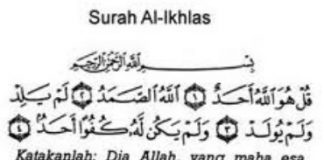 Surah Al-Ikhlas
بِسْمِ اللَّهِ الرَّحْمَٰنِ الرَّحِيمِ
قُلْ هُوَ اللَّهُ أَحَدٌ ١ اللَّهُ الصَّمَدُ ٢ لَمْ يَلِدْ
وَلَمْ يُولَدْ ٣ وَلَمْ يَكُن لَّهُ كُفُوًا أَحَدٌ ٤
Katakanlah: Dia Allah, yang maha esa.